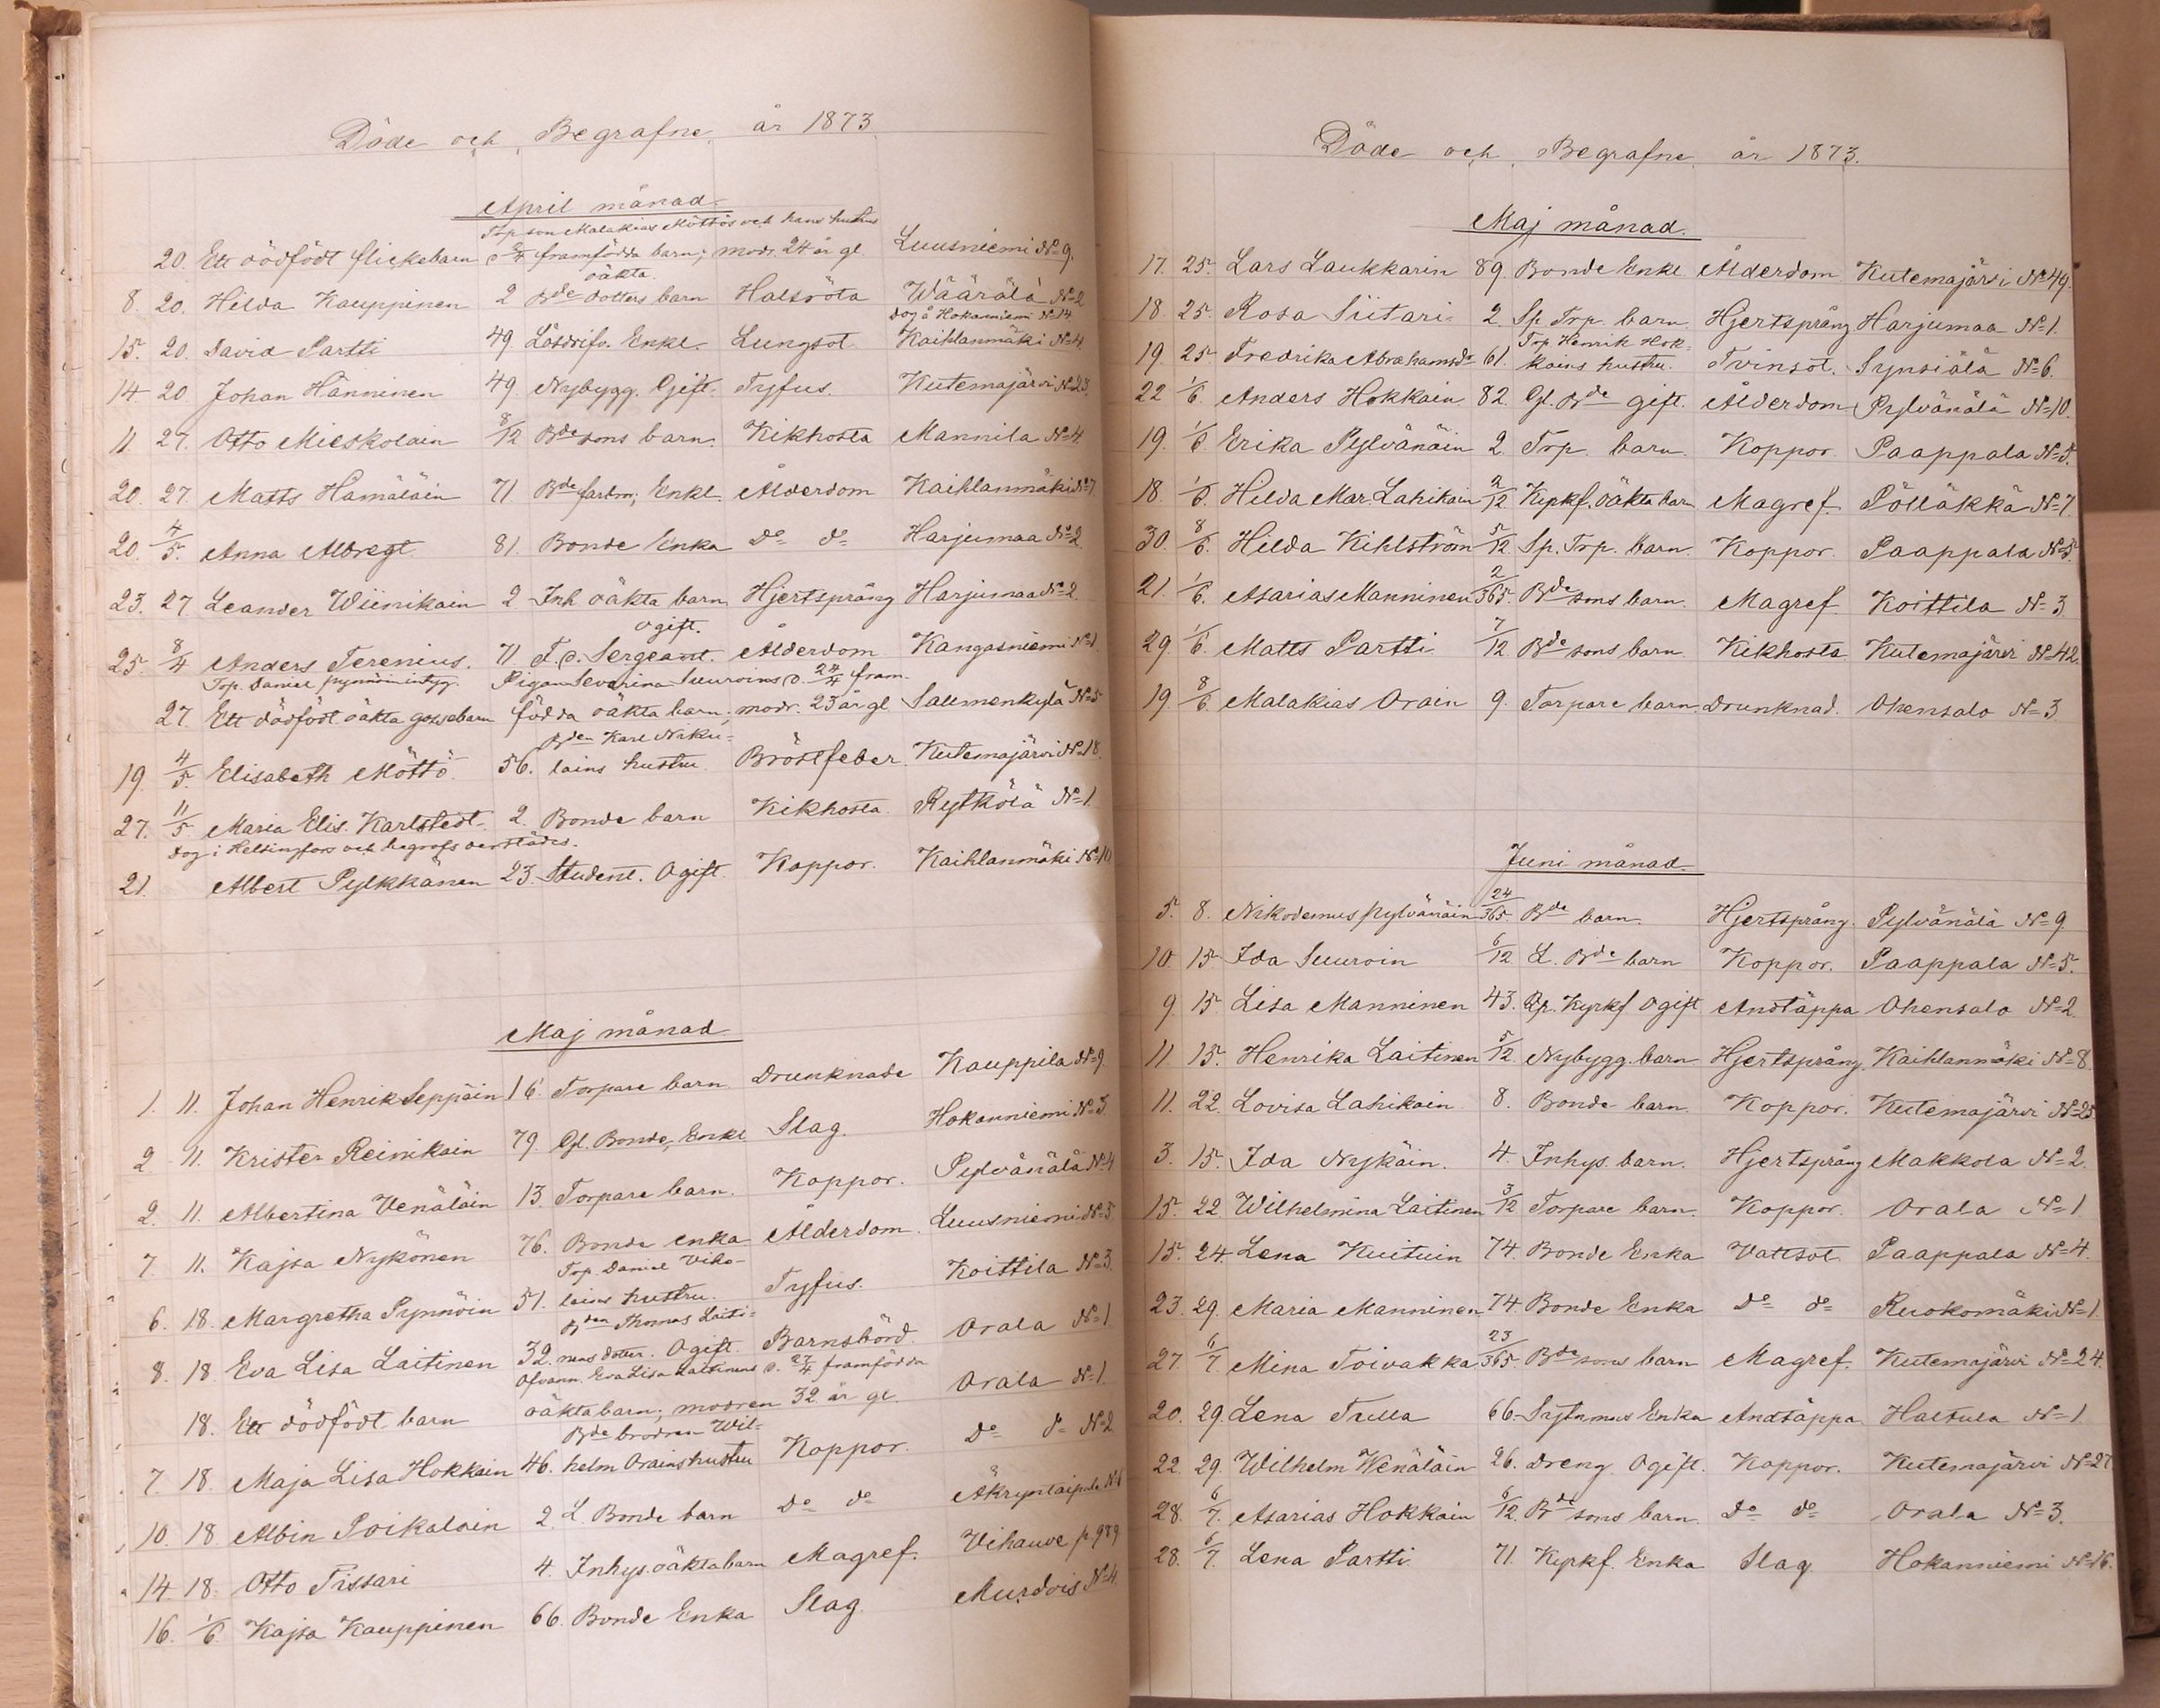 Döde och Begrafne år 1873
April månad
Trp. son Malakias Möttös och hans hustrus
20. Ett dödfödt flickebarn framfödda barn; modr. 24 år gl. Luusniemi No 9.
oäkta.
8. 20. Hilda Kauppinen 2 Bde dotters barn Halsröta Wäärälä No 2
dog å Hokanniemi No 14
15. 20. David Partti 49. Lösdrifv. Enkl. Lungsot Kaihlanmäki No 4
14 20 Johan Hänninen 49. Nybygg. Gift. Tyfus. Kutemajärvi No 23.
11. 27. Otto Mieskolain 8/12 Bde sons barn. Kikhosta Mannila No 4
20. 27. Matts Hämäläin 71. Bde farbr; Enkl. Ålderdom Kaihlanmäki No 7
20. 4/5. Anna Albregt 81. Bonde Enka Do do Harjumaa No 2
23. 27 Leander Wiinikain 2 Inh oäkta barn Hjertsprång Harjumaa No 2.
ogift.
25. 8/4 Anders Terenius. 71 F.d. Sergeant. Ålderdom Kangasniemi No 1
Trp. Daniel Pynnöin intyg. Pigan Severina Suuroins d. 24/4 fram-
27. Ett dödfödt oäkta gossebarn födda oäkta barn; modr. 23 år gl Salmenkylä No 5
Bden Karl Niku-
19. 4/5. Elisabeth Möttö. 56. lains hustru Bröstfeber. Kutemajärvi No 18.
27. 11/5 Maria Elis. Karlstedt 2. Bonde barn Kikhosta Rytkölä No 1.
dog i Helsingfors och begrofs derstädes.
21. Albert Pylkkänen 23. Student. Ogift. Koppor. Kaihlanmäki No 10
Maj månad
1. 11. Johan Henrik Seppäin 16 Torpare barn Drunknade Kauppila No 9.
2 11. Krister Reinikain 79. Gl. Bonde, Enkl Slag. Hokanniemi No 3.
2. 11. Albertina Venäläin 13. Torpare barn. Koppor. Pylvänälä No 4
7 11. Kajsa Nykönen 76. Bonde enka Ålderdom. Luusniemi No 3.
Trp. Daniel Viho-
6. 18. Margretha Pynnöin 51. lains hustru. Tyfus. Koittila No 3.
Bden Thomas Laiti-
8. 18. Eva Lisa Laitinen 32. nens dotter. Ogift. Barnsbörd. Orala No 1
Ofvann. Eva Lisa Laitinens d. 27/4 framfödda
18. Ett dödfödt barn oäkta barn; modren 32 år gl. Orala No 1.
Bde brodren Wil-
7. 18. Maja Lisa Hokkain 46. helm Orains hustru Koppor. Do do No 2
10. 18 Albin Poikolain 2. L. Bonde barn Do do
14. 18. Otto Tissari 4. Inhys. oäkta barn Magref. Vihauve p. 989
16. 1/6. Kajsa Kauppinen 66. Bonde Enka Slag. Murdois No 4.
Döde och Begrafne år 1873.
Maj månad.
17. 25. Lars Laukkarin 89. Bonde Enkl Ålderdom Kutemajärvi No 49.
18. 25. Rosa Siitari 2. Sp. Trp. barn Hjertsprång Harjumaa No 1.
Trp. Henrik Hok-
19. 25. Fredrika Abrahamsdr 61. kains hustru. Tvinsot. Synsiälä No 6.
22 1/6. Anders Hokkain 82. Gl. Bde gift. Ålderdom Pylvänälä No 10.
19. 1/6. Erika Pylvänäin 2. Trp. barn. Koppor. Paappala No 5.
18. 1/6. Hilda Mar. Lahikain 2/12 Kyrkf. oäkta barn Magref. Pölläkkä No 7.
30. 8/6. Hilda Kihlström 5/12. Sp. Trp. barn. Koppor. Paappala No 5.
21. 1/6. Asarias Manninen 2/365. Bde sons barn. Magref Koittila No 3
29. 1/6. Matts Partti 7/12. Bde sons barn Kikhosta Kutemajärvi No 42.
19. 8/6. Malakias Orain 9. Torpare barn. Drunknad. Ohensalo No 3
Juni månad.
5. 8. Nikodemus Pylvänäin 24/365. Bde barn. Hjertsprång. Pylvänälä No 9
10. 15 Ida Suuroin 6/12 L. Bde barn Koppor. Paappala No 5.
9 15. Lisa Manninen 43. Sp. Kyrkf. Ogift Andtäppa Ohensalo No 2.
11. 15. Henrika Laitinen 5/12. Nybygg. barn Hjertsprång. Kaihlanmäki No 8.
11. 22. Lovisa Lahikain 8. Bonde barn Koppor. Kutemajärvi No 25
3. 15. Ida Nykäin. 4. Inhys. barn. Hjertsprång Makkola No 2.
15. 22. Wilhelmina Laitinen 3/12 Torpare barn. Koppor. Orala No 1.
15. 24. Lena Kuituin 74. Bonde Enka Vattsot. Paappala No 4.
23. 29. Maria Manninen 74. Bonde Enka Do do Ruokomäki No 1.
27. 6/7. Mina Toivakka 23/365. Bde sons barn Magref. Kutemajärvi No 24.
20. 29. Lena Trulla 66. Enka Andtäppa. Haltula No 1.
22. 29. Wilhelm Wenäläin 26. Dreng. Ogift. Koppor. Kutemajärvi No 27
28. 6/7. Asarias Hokkain 6/12. Bde sons barn. Do do Orala No 3.
28. 6/7. Lena Partti 71. Kyrkf. Enka Slag Hokanniemi No 16.